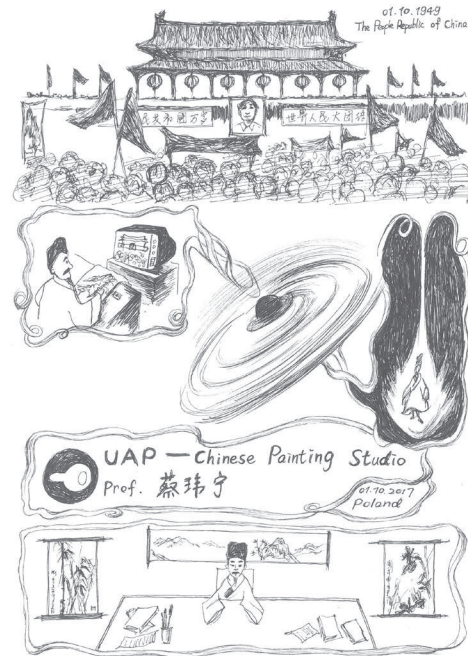 01.10.1949
The People Republic of China
民共和国万岁
世界人民大团结
UAP — Chinese Painting Studio
Prof. 蔡玮宁
01.10.2017
Poland